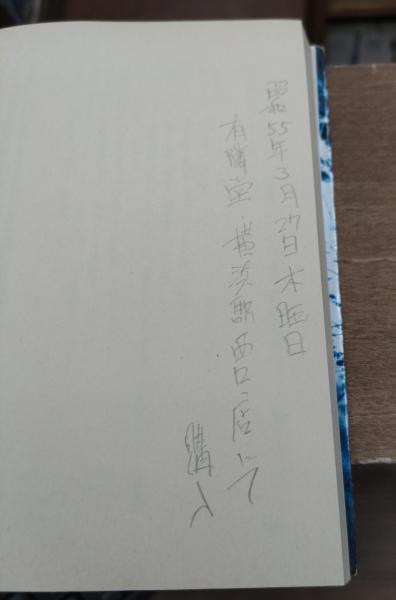 昭55年3月27日木曜日
有隣堂・横浜駅西口店にて
購入